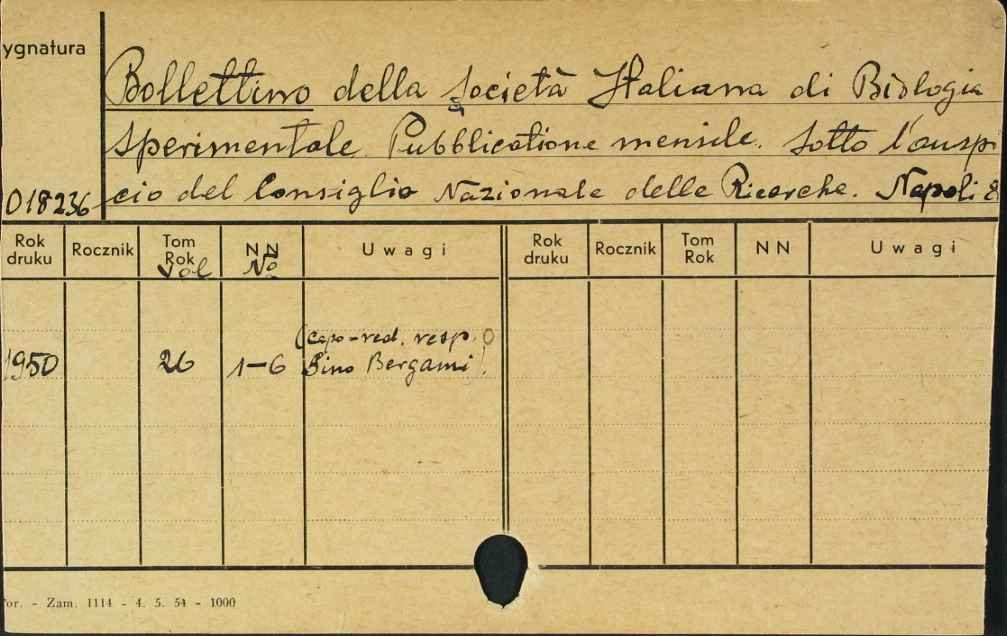 ygnatura
Bollettino della Società Italiana di Biologia
Sperimentale. Pubblicatione mensile. Sotto l'ausp
018236 cio del Consiglio Nazionale delle Ricerche. Napoli 8
Rok druku Rocznik Tom Rok Vol NN No Uwagi Rok druku Rocznik Tom Rok NN Uwagi
(capo-red. resp.
1950 26 1-6 Gino Bergami)
or. - Zam. 1114 - 4. 5. 54 - 1000